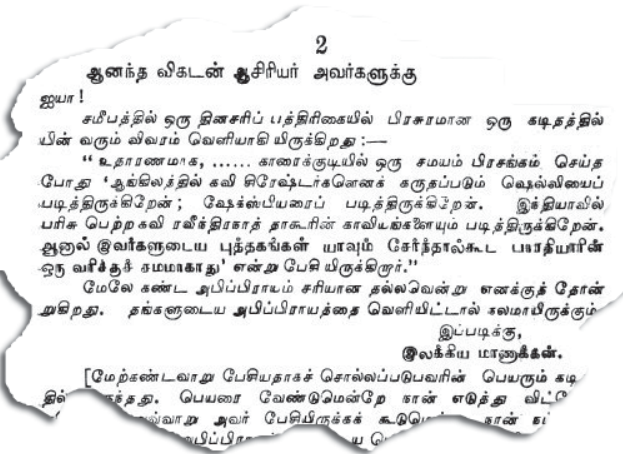 2
ஆனந்த விகடன் ஆசிரியர் அவர்களுக்கு
ஐயா !
சமீபத்தில் ஒரு தினசரிப் பத்திரிகையில் பிரசுரமான ஒரு கடிதத்தில்
பின் வரும் விவரம் வெளியாகி யிருக்கிறது :—
“ உதாரணமாக, ...... காரைக்குடியில் ஒரு சமயம் பிரசங்கம் செய்த
போது ‘ஆங்கிலத்தில் கவி சிரேஷ்டர்களெனக் கருதப்படும் ஷெல்லியைப்
படித்திருக்கிறேன் ; ஷேக்ஸ்பியரைப் படித்திருக்கிறேன். இந்தியாவில்
பரிசு பெற்றகவி ரவீந்திரநாத் தாகூரின் காவியங்களையும் படித்திருக்கிறேன்.
ஆனால் இவர்களுடைய புத்தகங்கள் யாவும் சேர்ந்தால்கூட பாரதியாரின்
ஒரு வரிக்குச் சமமாகாது’ என்று பேசி யிருக்கிறார்.”
மேலே கண்ட அபிப்பிராயம் சரியான தல்லவென்று எனக்குத் தோன்
றுகிறது. தங்களுடைய அபிப்பிராயத்தை வெளியிட்டால் நலமாயிருக்கும்
இப்படிக்கு,
இலக்கிய மாணாக்கன்.
[மேற்கண்டவாறு பேசியதாகச் சொல்லப்படுபவரின் பெயரும்
பெயரை வேண்டுமென்றே நான் எடுத்து
அவர் பேசியிருக்கக் நான்